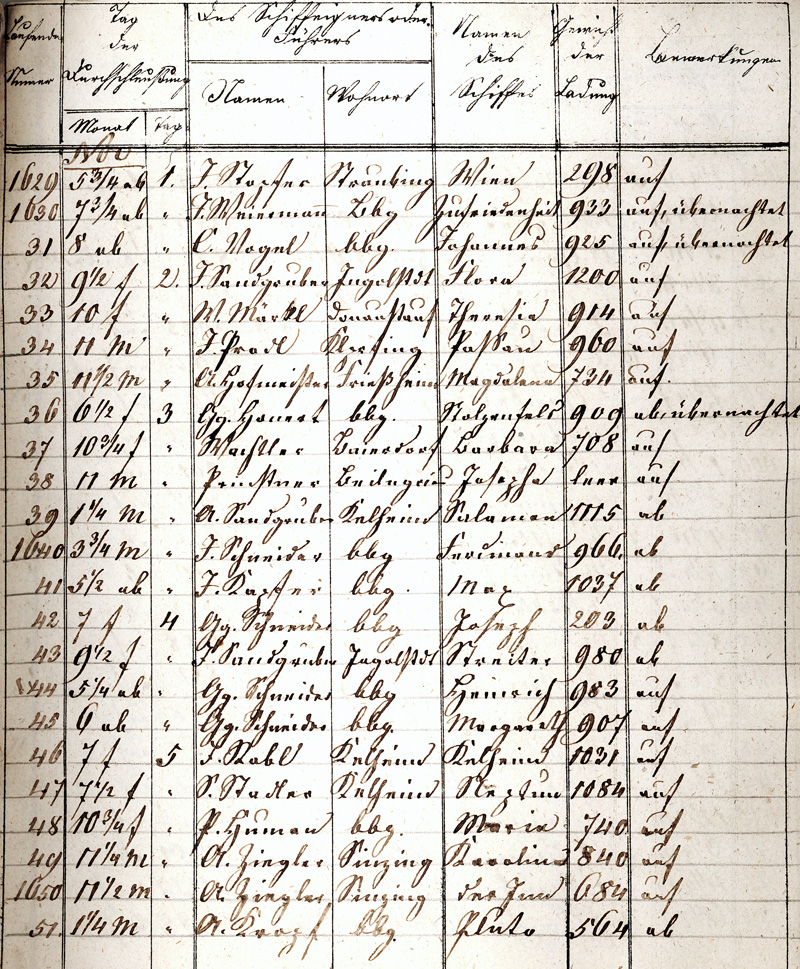 Laufende Numer | Tag der Durchschleußung | Des Schiffeigners oder Führers | Namen des Schiffes | Gewicht der Ladung | Bemerkungen
Monat | Tag | Namen | Wohnort
Nov
1629 5 3/4 ab 1. J. Stopfer Straubing Wien 298 auf
1630 7 3/4 ab " J. Meiermann Bbg Zufriedenheit 933 auf, übernachtet
31 8 ab " C. Vogel bbg. Johannes 925 auf, übernachtet
32 9 1/2 f 2. J. Sandgruber Ingolstdt Flora 1200 auf
33 10 f " W. Märkl Donaustauf Theresia 914 auf
34 11 m " J. Prodl Passau 960 auf
35 11 1/2 m " A. Hofmeister Magdalena 734 auf.
36 6 1/2 f 3 Gg. bbg. Stolzenfels 909 ab, übernachtet
37 10 3/4 f " Wachtler Baiersdorf Barbara 708 auf
38 11 m " Beilngries Josepha leer auf
39 1 1/4 m " A. Sandgruber Kelheim Salamon 1115 ab
1640 3 3/4 m " J. Schneider bbg Ferdinand 966. ab
41 5 1/2 ab " J. Kapfer bbg. Max 1037 ab
42 7 f 4 Gg. Schneider bbg Joseph 203 ab
43 9 1/2 f " J. Sandgruber Ingolstdt Streiter 980 ab
44 5 1/4 ab " Gg. Schneider bbg Heinrich 983 auf
45 6 ab " Gg. Schneider bbg. Margareth 907 auf
46 7 f 5 J. Kelheim Kelheim 1031 auf
47 7 1/2 f " S. Stadler Kelheim Neptun 1084 auf
48 10 3/4 f " P. Human bbg. Maria 740 auf
49 11 1/4 m " A. Ziegler Sinzing Karolina 840 auf
1650 11 1/2 m " A. Ziegler Sinzing der Inn 684 auf
51. 1 1/4 m " A. Kropf bbg. Pluto 564 ab